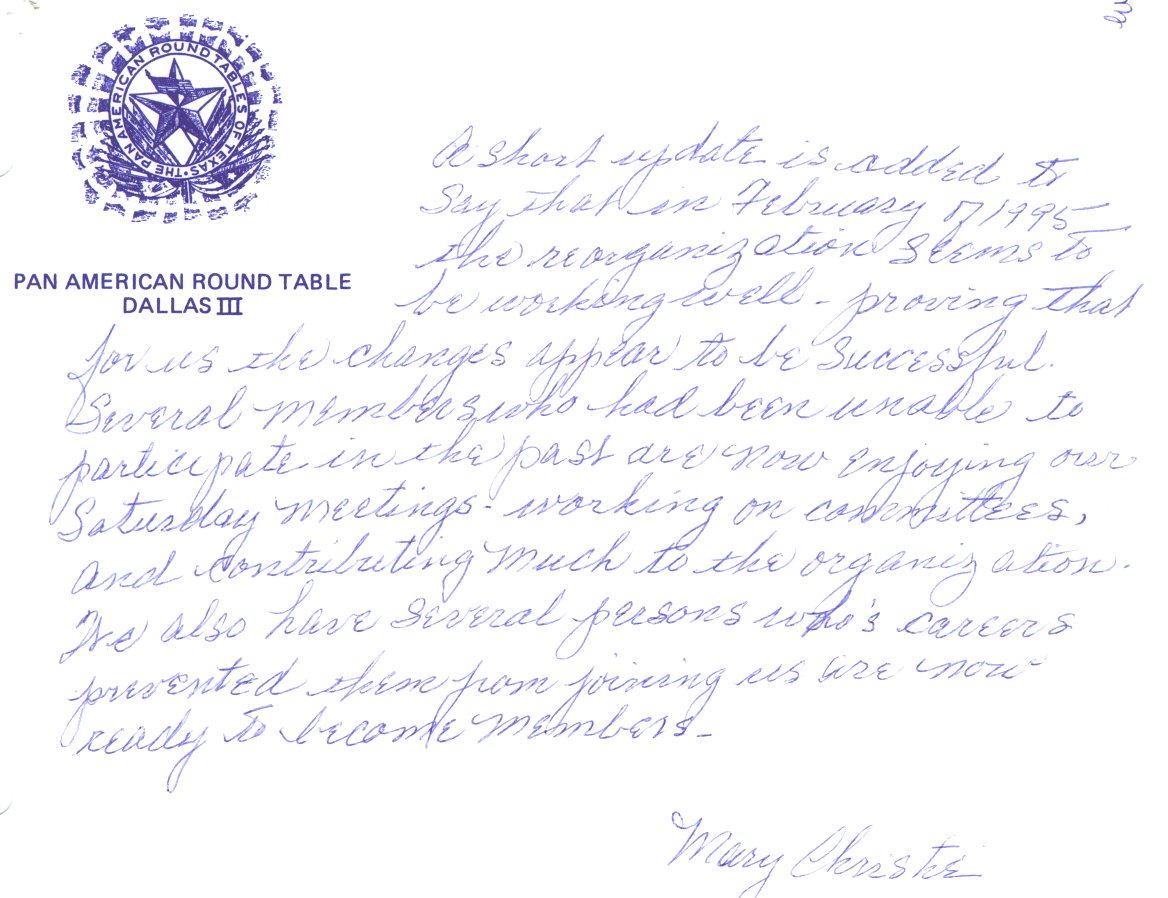 THE PAN AMERICAN ROUND TABLES OF TEXAS
PAN AMERICAN ROUND TABLE
DALLAS III
A short update is added to
Say that in February of 1995
the reorganization seems to
be working well - proving that
for us the changes appear to be successful.
Several members who had been unable to
participate in the past are now enjoying our
Saturday meetings - working on committees,
and contributing much to the organization.
We also have several persons who's careers
prevented them from joining us are now
ready to become members -
Mary Christie